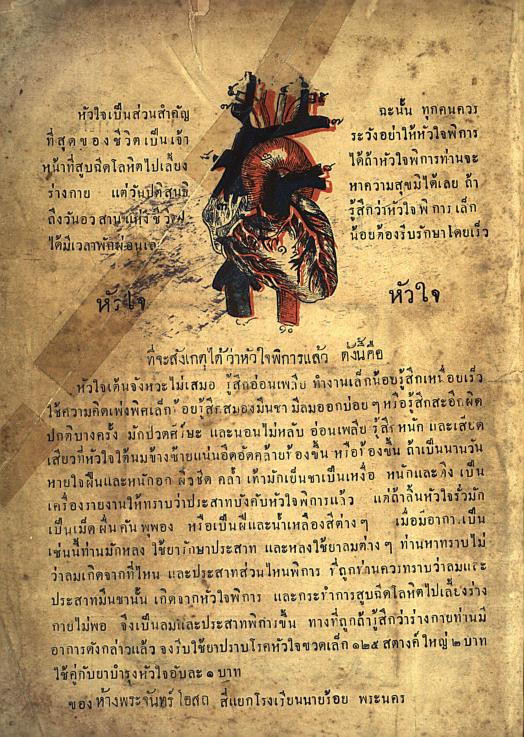 หัวใจเป็นส่วนสำคัญ
ที่สุดของชีวิตเป็นเจ้า
หน้าที่สูบฉีดโลหิตไปเลี้ยง
ร่างกาย แต่วันปติสนธิ
ถึงวันอวสานแห่งชีวิต
ได้มีเวลาพักผ่อนเลย
หัวใจ
ฉะนั้น ทุกคนควร
ระวังอย่าให้หัวใจพิการ
ได้ถ้าหัวใจพิการท่านจะ
หาความสุขมิได้เลย ถ้า
รู้สึกว่าหัวใจพิการเล็ก
น้อยต้องรีบรักษาโดยเร็ว
หัวใจ
ที่จะสังเกตุได้ว่าหัวใจพิการแล้ว ดังนี้คือ
หัวใจเต้นจังหวะไม่เสมอ รู้สึกอ่อนเพลีย ทำงานเล็กน้อยรู้สึกเหนื่อยเร็ว
ใช้ความคิดเพ่งพิศเล็กน้อยรู้สึกสมองมึนชา มีลมออกบ่อย ๆ หรือรู้สึกสะอึกผิด
ปกติบางครั้ง มักปวดศีร์ษะ และนอนไม่หลับ อ่อนเพลีย รู้สึกหนัก และเสียด
เสียวที่หัวใจใต้นมข้างซ้ายแน่นอึดอัดคล้ายท้องขึ้น หรือท้องขึ้น ถ้าเป็นนานวัน
หายใจฝืนและหนักอก ผิวซีด คล้ำ เท้ามักเย็นชาเป็นเหงื่อ หนักและตึง เป็น
เครื่องรายงานให้ทราบว่าประสาทบังคับหัวใจพิการแล้ว แต่ถ้าลิ้นหัวใจรั่วมัก
เป็นเม็ดผื่นคันพุพอง หรือเป็นฝีและน้ำเหลืองสีต่าง ๆ เมื่อมีอาการเป็น
เช่นนี้ท่านมักหลง ใช้ยารักษาประสาท และหลงใช้ยาลมต่าง ๆ ท่านหาทราบไม่
ว่าลมเกิดจากที่ไหน และประสาทส่วนไหนพิการ ที่ถูกท่านควรทราบว่าลมและ
ประสาทมึนชานั้น เกิดจากหัวใจพิการ และกระทำการสูบฉีดโลหิตไปเลี้ยงร่าง
กายไม่พอ จึงเป็นลมและประสาทพิการขึ้น ทางที่ถูกถ้ารู้สึกว่าร่างกายท่านมี
อาการดังกล่าวแล้ว จงรีบใช้ยาปราบโรคหัวใจขวดเล็ก ๑๒๕ สตางค์ ใหญ่ ๒ บาท
ใช้คู่กับยาบำรุงหัวใจอับละ ๑ บาท
ของ ห้างพระจันทร์โอสถ สี่แยกโรงเรียนนายร้อย พระนคร